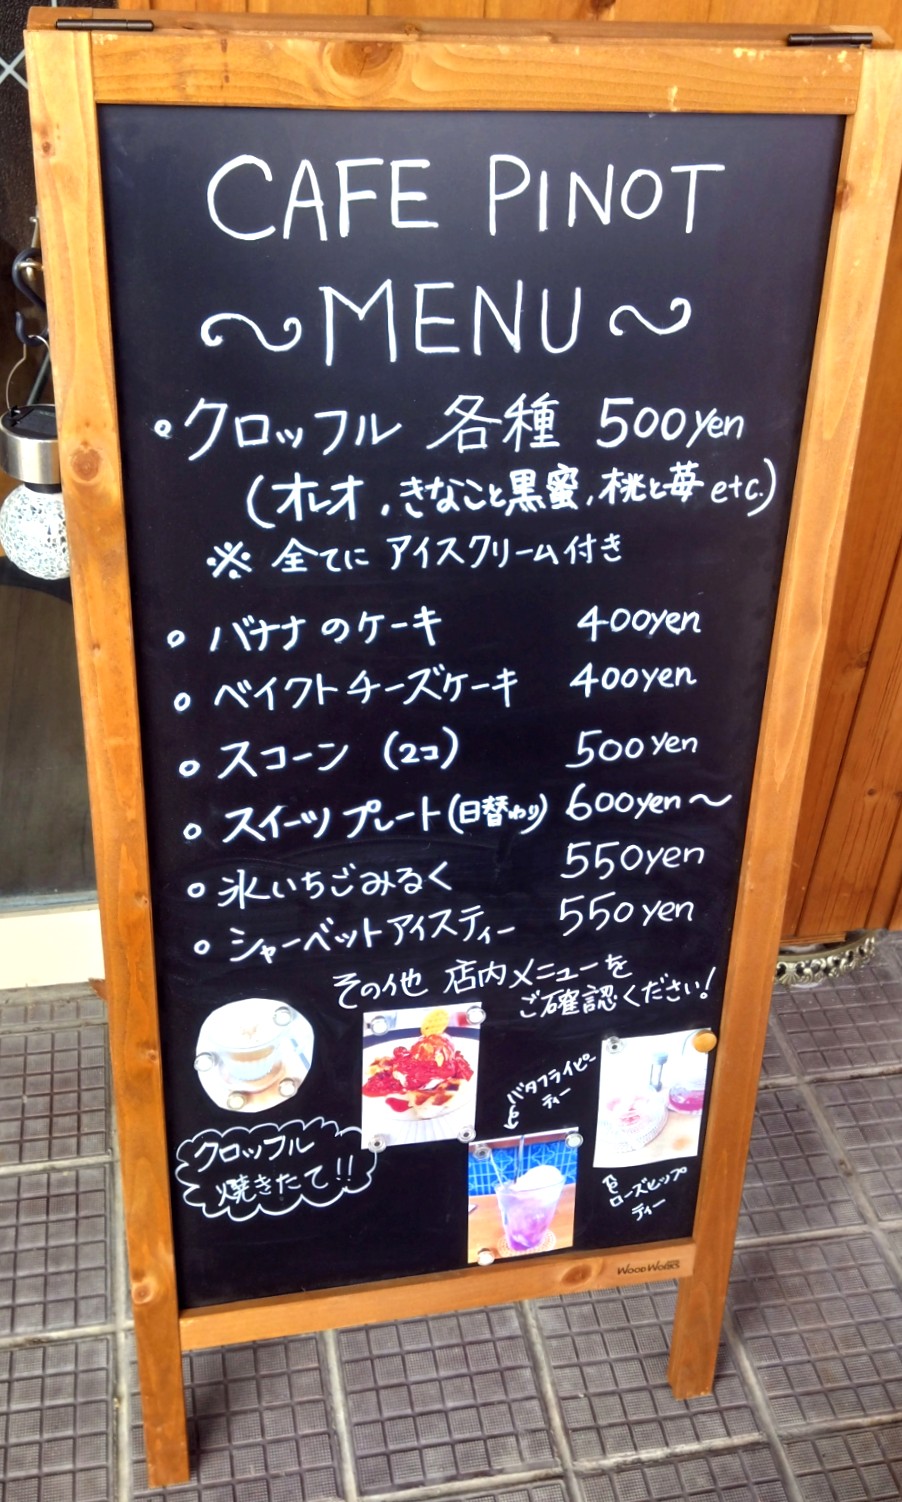 CAFE PINOT
～MENU～
○クロッフル 各種 500yen
(オレオ,きなこと黒蜜,桃と苺 etc.)
※ 全てに アイスクリーム付き
○ バナナのケーキ 400yen
○ ベイクトチーズケーキ 400yen
○ スコーン (2コ) 500yen
○ スイーツプレート(日替わり) 600yen～
○ 氷いちごみるく 550yen
○ シャーベットアイスティー 550yen
その他 店内メニューを
ご確認ください!
クロッフル
焼きたて!!
バタフライピー
ティー
ローズヒップ
ティー
WOODWORKS